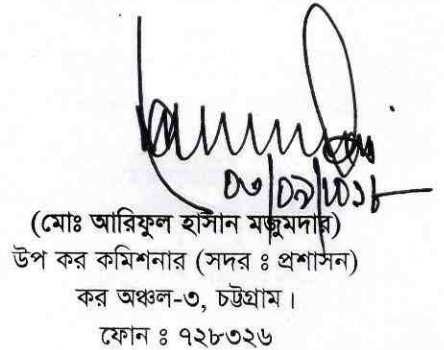 ০৩/০৯/২০১৮
(মোঃ আরিফুল হাসান মজুমদার)
উপ কর কমিশনার (সদর ঃ প্রশাসন)
কর অঞ্চল-৩, চট্টগ্রাম।
ফোন ঃ ৭২৮৩২৬